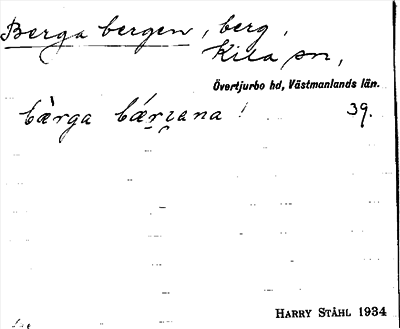 Berga bergen, berg,
Kila sn,
Övertjurbo hd, Västmanlands län.
bærga 39.
HARRY STÅHL 1934